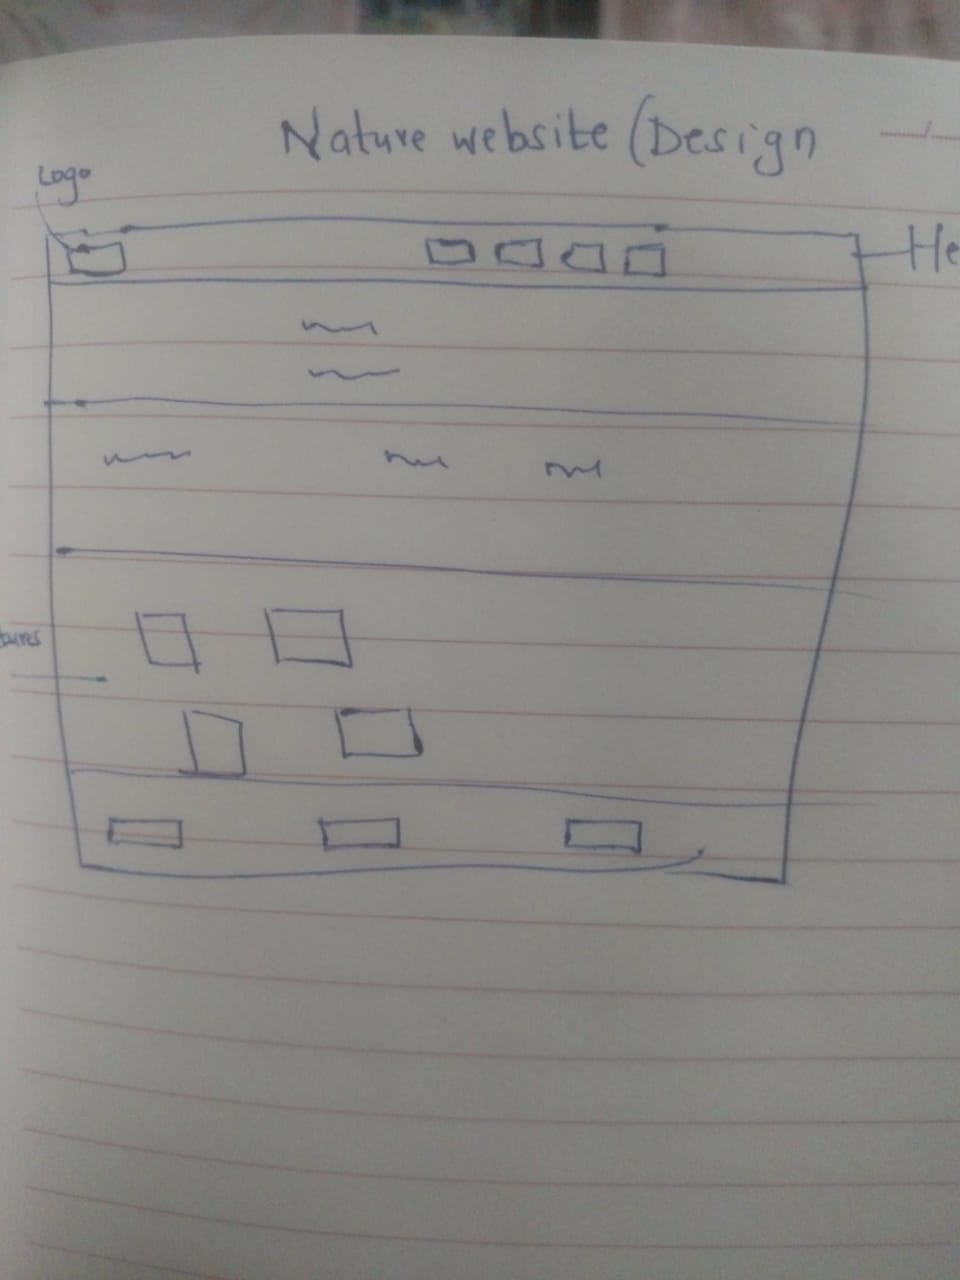 Nature website (Design
Logo
He
tures